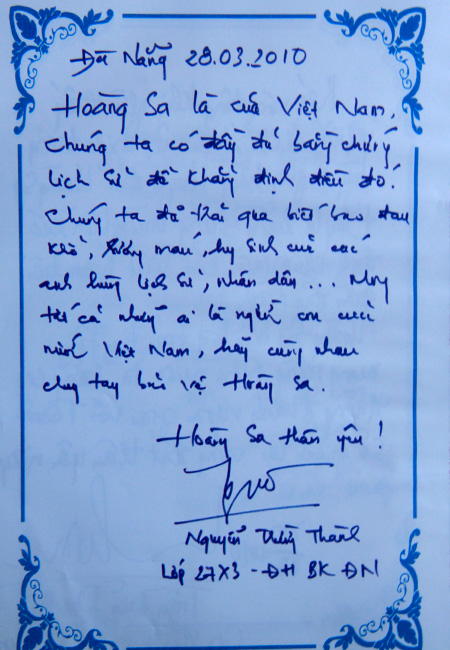 Đà Nẵng 28.03.2010
Hoàng Sa là của Việt Nam,
chúng ta có đầy đủ bằng chứng
lịch sử để khẳng định điều đó.
Chúng ta đã trải qua biết bao đau
khổ, xương máu, hy sinh của các
anh hùng lịch sử, nhân dân ... Mong
tất cả những ai là người con của
mình Việt Nam, hãy cùng nhau
chung tay bảo vệ Hoàng Sa.
Hoàng Sa thân yêu !
Nguyễn Thành
Lớp 27X3 - ĐH BK ĐN